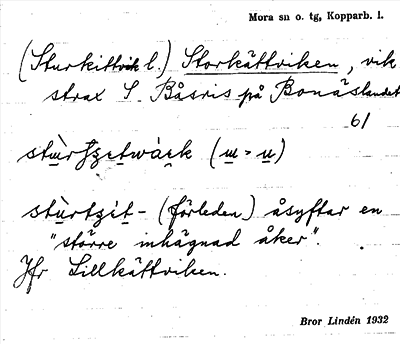 Mora sn o. tg, Kopparb. l.
(Sturkittvik l.) Storkättviken, vik
strax S. Båsris på Bonäslandet
61
stùrtʒitwàik (ɯ = u)
stùrtʒit- (förleden) åsyftar en
"större inhägnad åker".
Jfr Lillkättviken.
Bror Lindén 1932